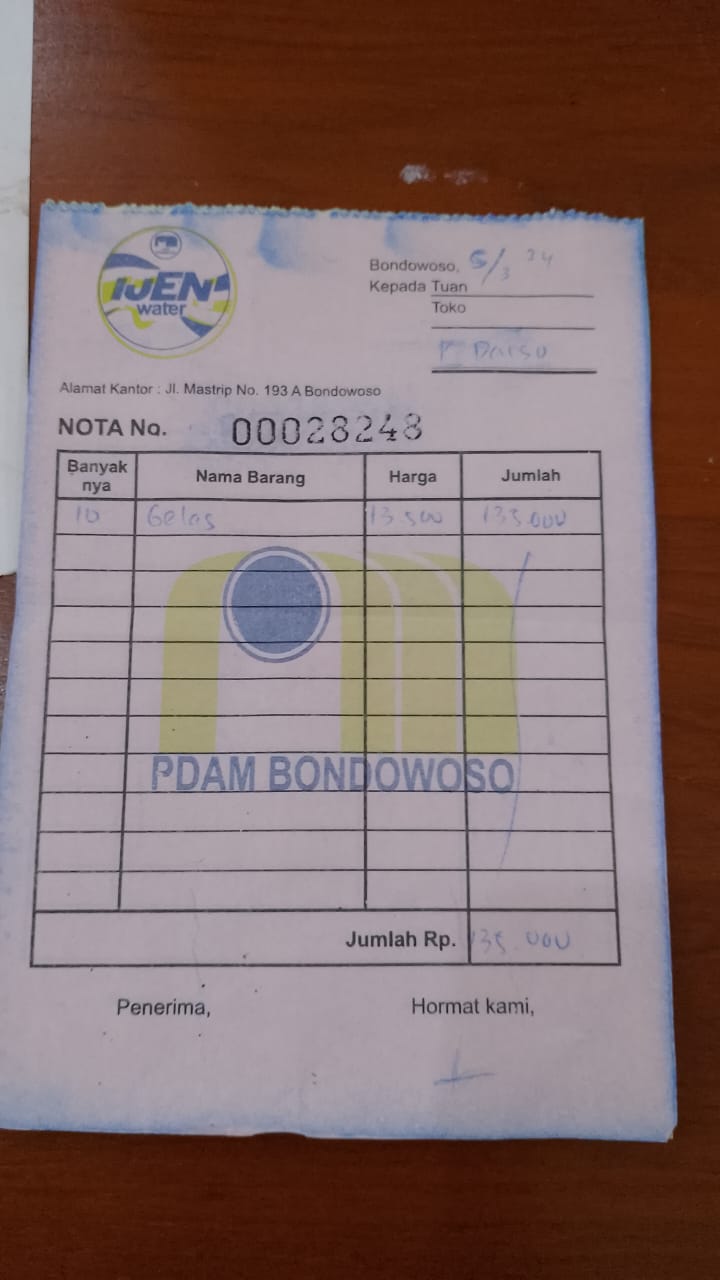 IJEN
water
Bondowoso, 5/3 24
Kepada Tuan
Toko
P Darso
Alamat Kantor : Jl. Mastrip No. 193 A Bondowoso
NOTA No. 00028248
Banyak nya Nama Barang Harga Jumlah
10 Gelas 13.500 135.000
PDAM BONDOWOSO
Jumlah Rp. 135.000
Penerima, Hormat kami,